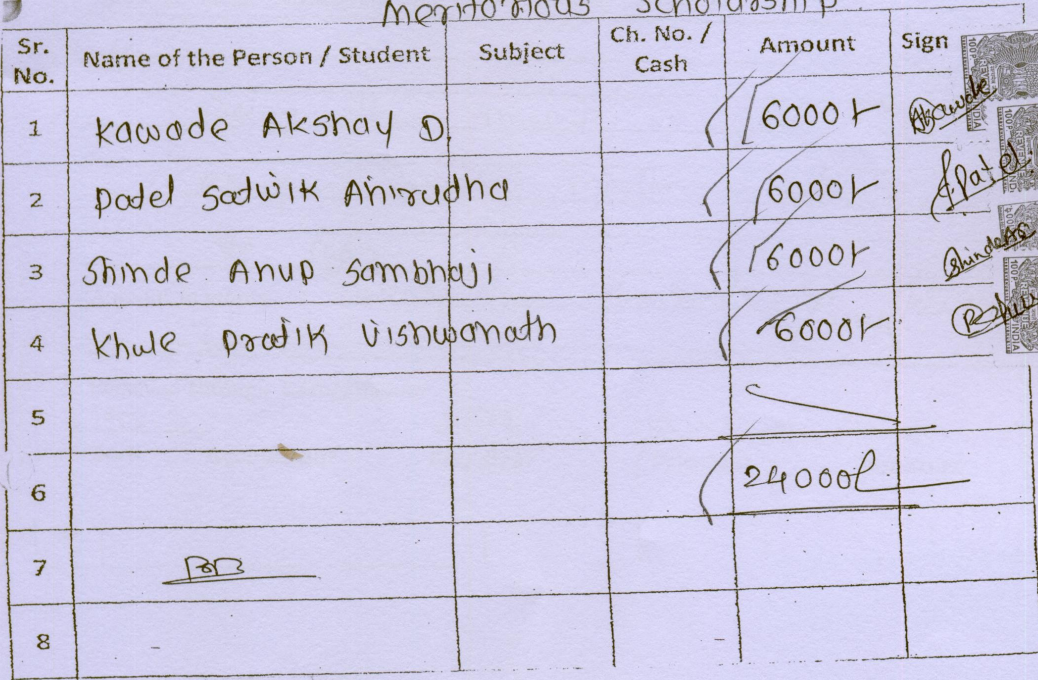 Meritorious Scholarship
Sr. No. Name of the Person / Student Subject Ch. No. / Cash Amount Sign
1 Kawade Akshay D. 6000/- AKawade
2 Patel Satwik Anirudha 6000/- S.Patel.
3 Shinde Anup Sambhaji 6000/- ShindeAS
4 Khule Pratik Vishwanath 6000/-
5
6 24000/-
7
8